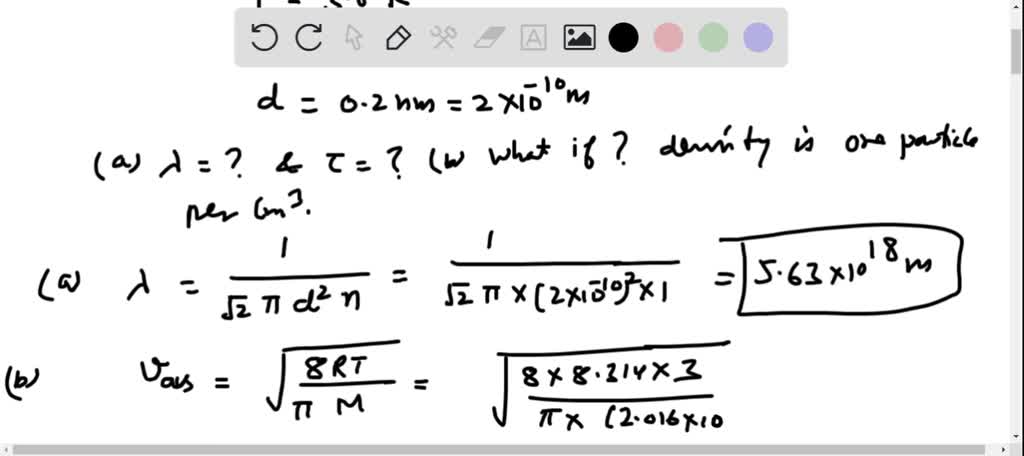 d = 0.2 nm = 2 × 10⁻¹⁰ m
(a) λ = ? & τ = ? (b) what if ? density is one particle
per cm³.
(a) λ = 1 / (√2 π d² n) = 1 / (√2 π × (2×10⁻¹⁰)² × 1) = 5.63 × 10¹⁸ m
(b) = √(8RT / π M) = √(8 × 8.314 × 3 / π × (2.016 × 10